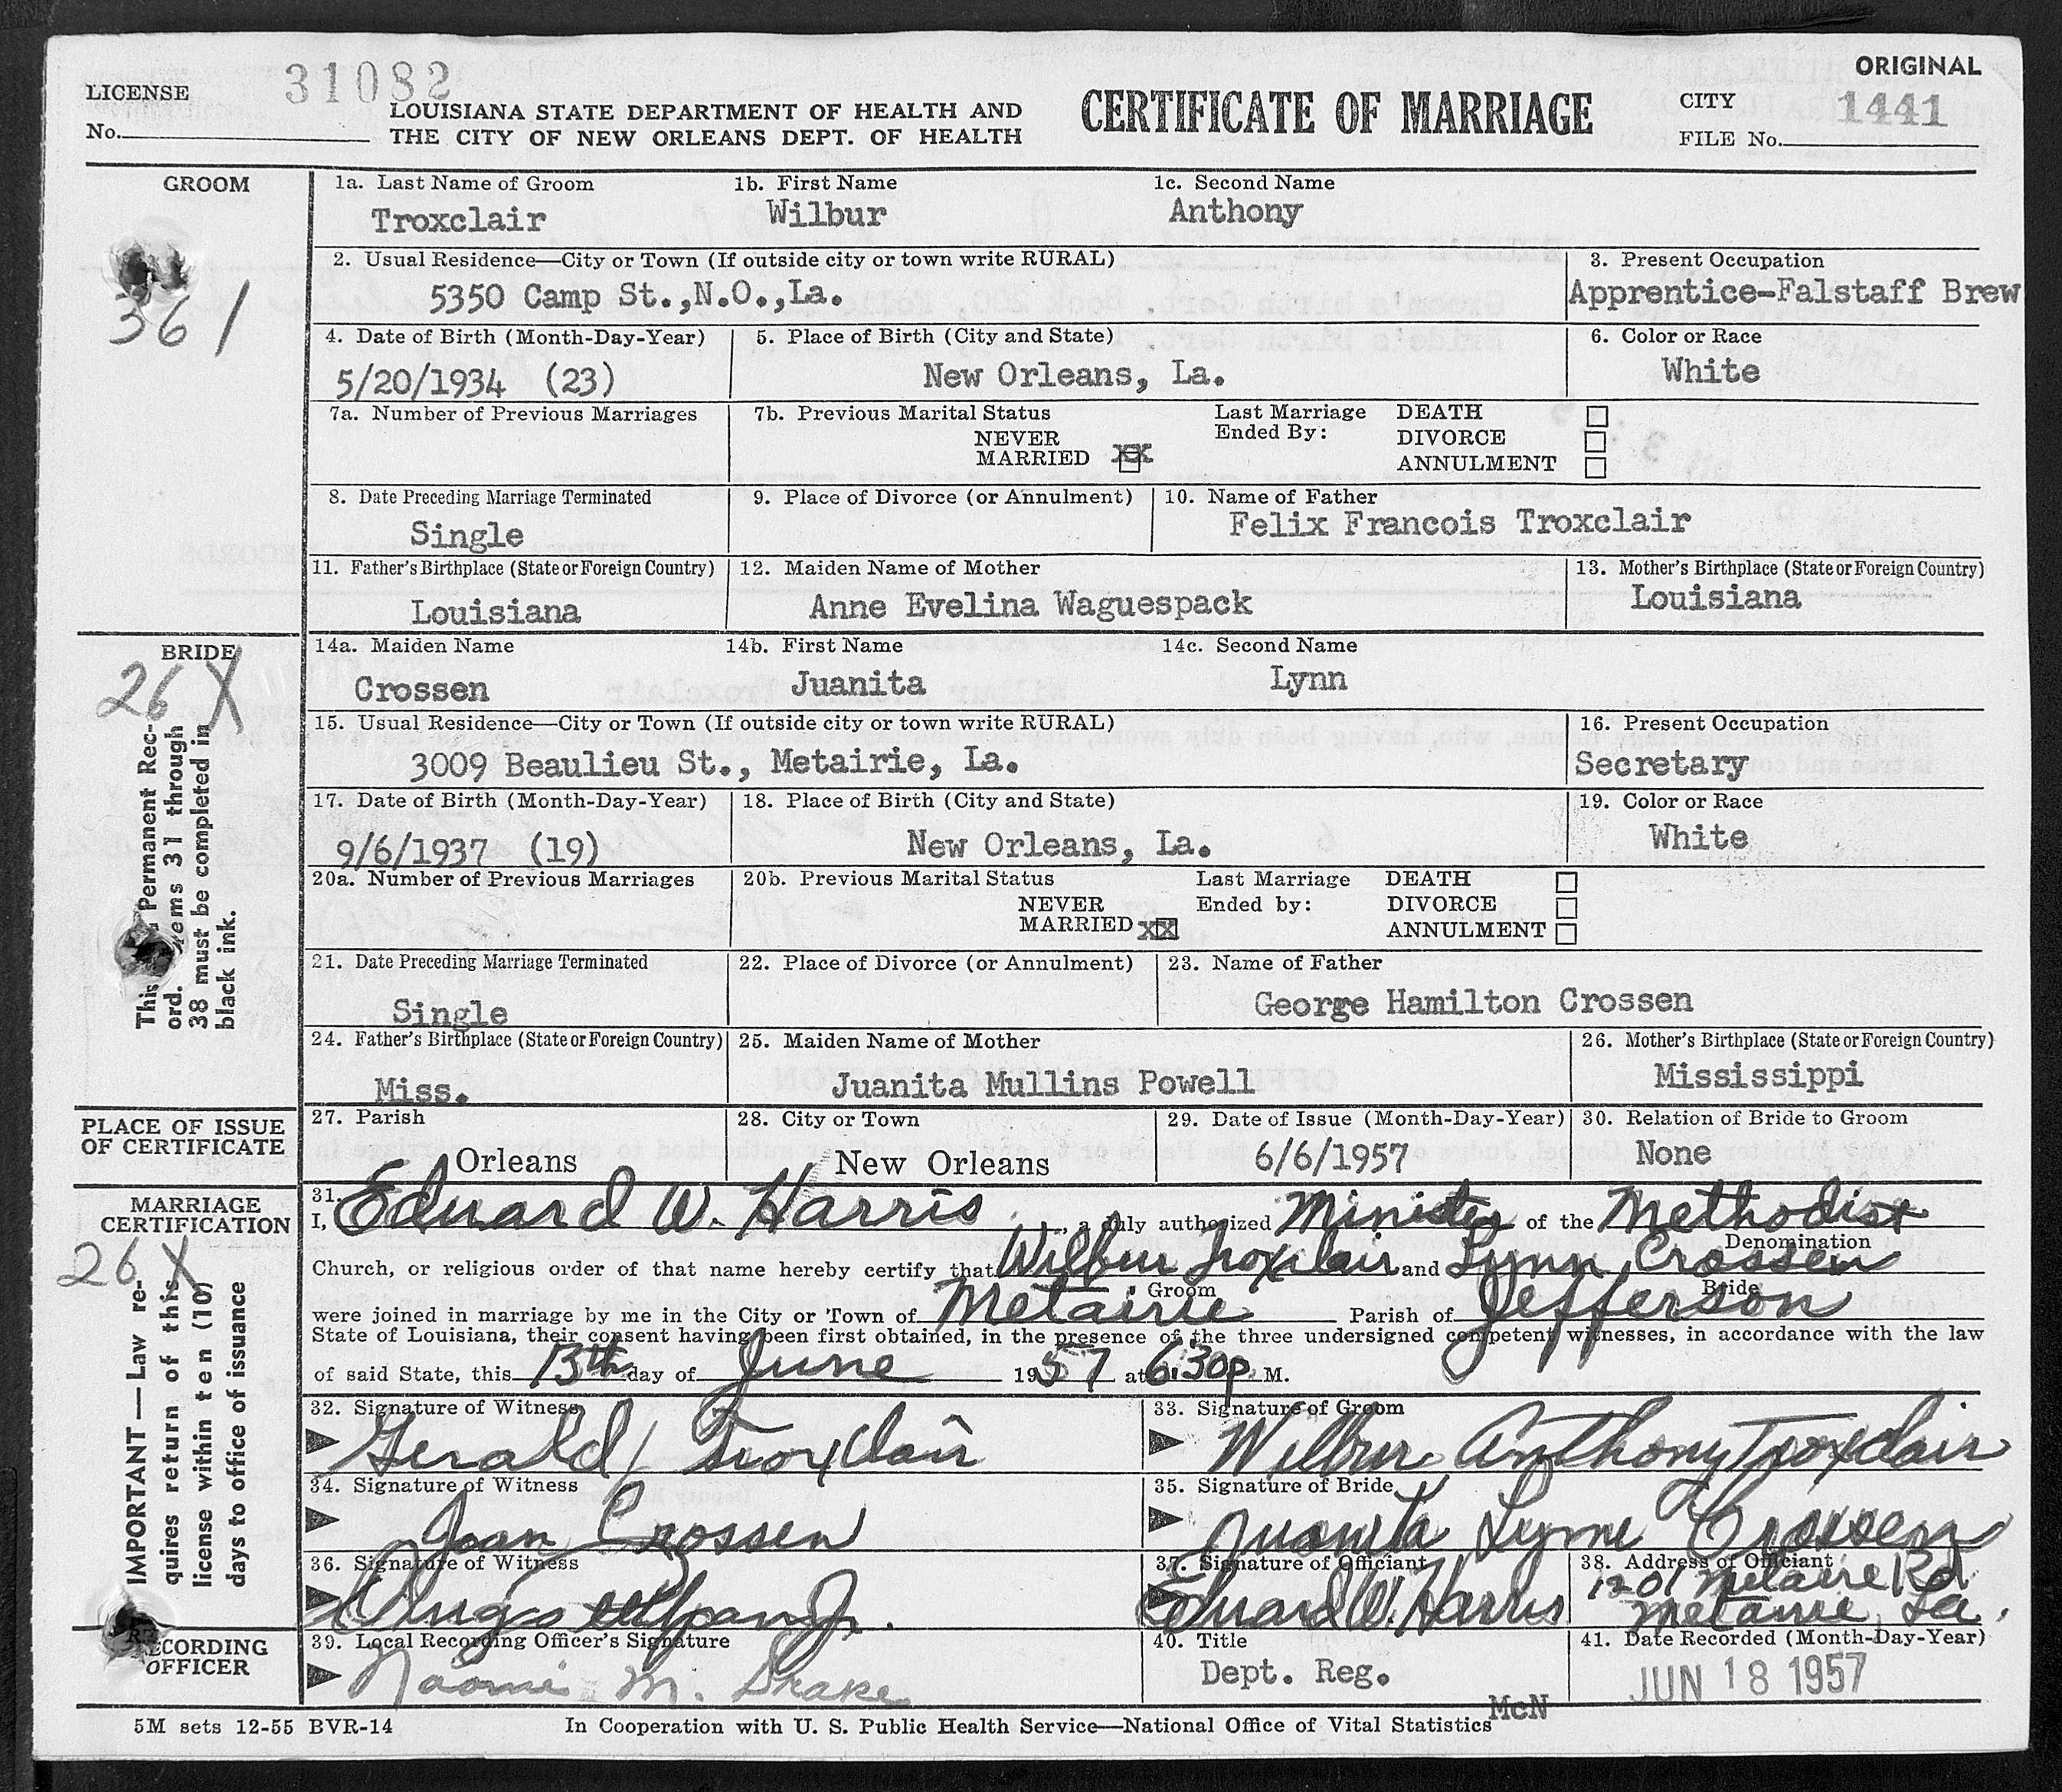 ORIGINAL
LICENSE
No.
31082
LOUISIANA STATE DEPARTMENT OF HEALTH AND
THE CITY OF NEW ORLEANS DEPT. OF HEALTH
CERTIFICATE OF MARRIAGE
CITY
FILE No. 1441
GROOM
361
1a. Last Name of Groom 1b. First Name 1c. Second Name
Troxclair Wilbur Anthony
2. Usual Residence—City or Town (If outside city or town write RURAL) 3. Present Occupation
5350 Camp St.,N.O.,La. Apprentice-Falstaff Brew
4. Date of Birth (Month-Day-Year) 5. Place of Birth (City and State) 6. Color or Race
5/20/1934 (23) New Orleans, La. White
7a. Number of Previous Marriages 7b. Previous Marital Status Last Marriage Ended By: DEATH
NEVER MARRIED XX DIVORCE
ANNULMENT
8. Date Preceding Marriage Terminated 9. Place of Divorce (or Annulment) 10. Name of Father
Single Felix Francois Troxclair
11. Father's Birthplace (State or Foreign Country) 12. Maiden Name of Mother 13. Mother's Birthplace (State or Foreign Country)
Louisiana Anne Evelina Waguespack Louisiana
BRIDE
26 X
This Permanent Rec-
ord. Items 31 through
38 must be completed in
black ink.
14a. Maiden Name 14b. First Name 14c. Second Name
Crossen Juanita Lynn
15. Usual Residence—City or Town (If outside city or town write RURAL) 16. Present Occupation
3009 Beaulieu St., Metairie, La. Secretary
17. Date of Birth (Month-Day-Year) 18. Place of Birth (City and State) 19. Color or Race
9/6/1937 (19) New Orleans, La. White
20a. Number of Previous Marriages 20b. Previous Marital Status Last Marriage Ended by: DEATH
NEVER MARRIED XX DIVORCE
ANNULMENT
21. Date Preceding Marriage Terminated 22. Place of Divorce (or Annulment) 23. Name of Father
Single George Hamilton Crossen
24. Father's Birthplace (State or Foreign Country) 25. Maiden Name of Mother 26. Mother's Birthplace (State or Foreign Country)
Miss. Juanita Mullins Powell Mississippi
PLACE OF ISSUE
OF CERTIFICATE
27. Parish 28. City or Town 29. Date of Issue (Month-Day-Year) 30. Relation of Bride to Groom
Orleans New Orleans 6/6/1957 None
MARRIAGE
CERTIFICATION
26 X
IMPORTANT—Law re-
quires return of this
license within ten (10)
days to office of issuance
31.
I, Edward W. Harris, a duly authorized Minister of the Methodist
Denomination
Church, or religious order of that name hereby certify that Wilbur Troxclair and Lynn Crossen
Groom Bride
were joined in marriage by me in the City or Town of Metairie Parish of Jefferson
State of Louisiana, their consent having been first obtained, in the presence of the three undersigned competent witnesses, in accordance with the law
of said State, this 13th day of June 1957 at 6:30 P. M.
32. Signature of Witness 33. Signature of Groom
Gerald Troxclair Wilbur Anthony Troxclair
34. Signature of Witness 35. Signature of Bride
Joan Crossen Juanita Lynn Crossen
36. Signature of Witness 37. Signature of Officiant 38. Address of Officiant
Edward W. Harris 1201 Metairie Rd
Metairie, La.
RECORDING
OFFICER
39. Local Recording Officer's Signature 40. Title 41. Date Recorded (Month-Day-Year)
Naomi M. Drake Dept. Reg. JUN 18 1957
McN
5M sets 12-55 BVR-14 In Cooperation with U. S. Public Health Service—National Office of Vital Statistics